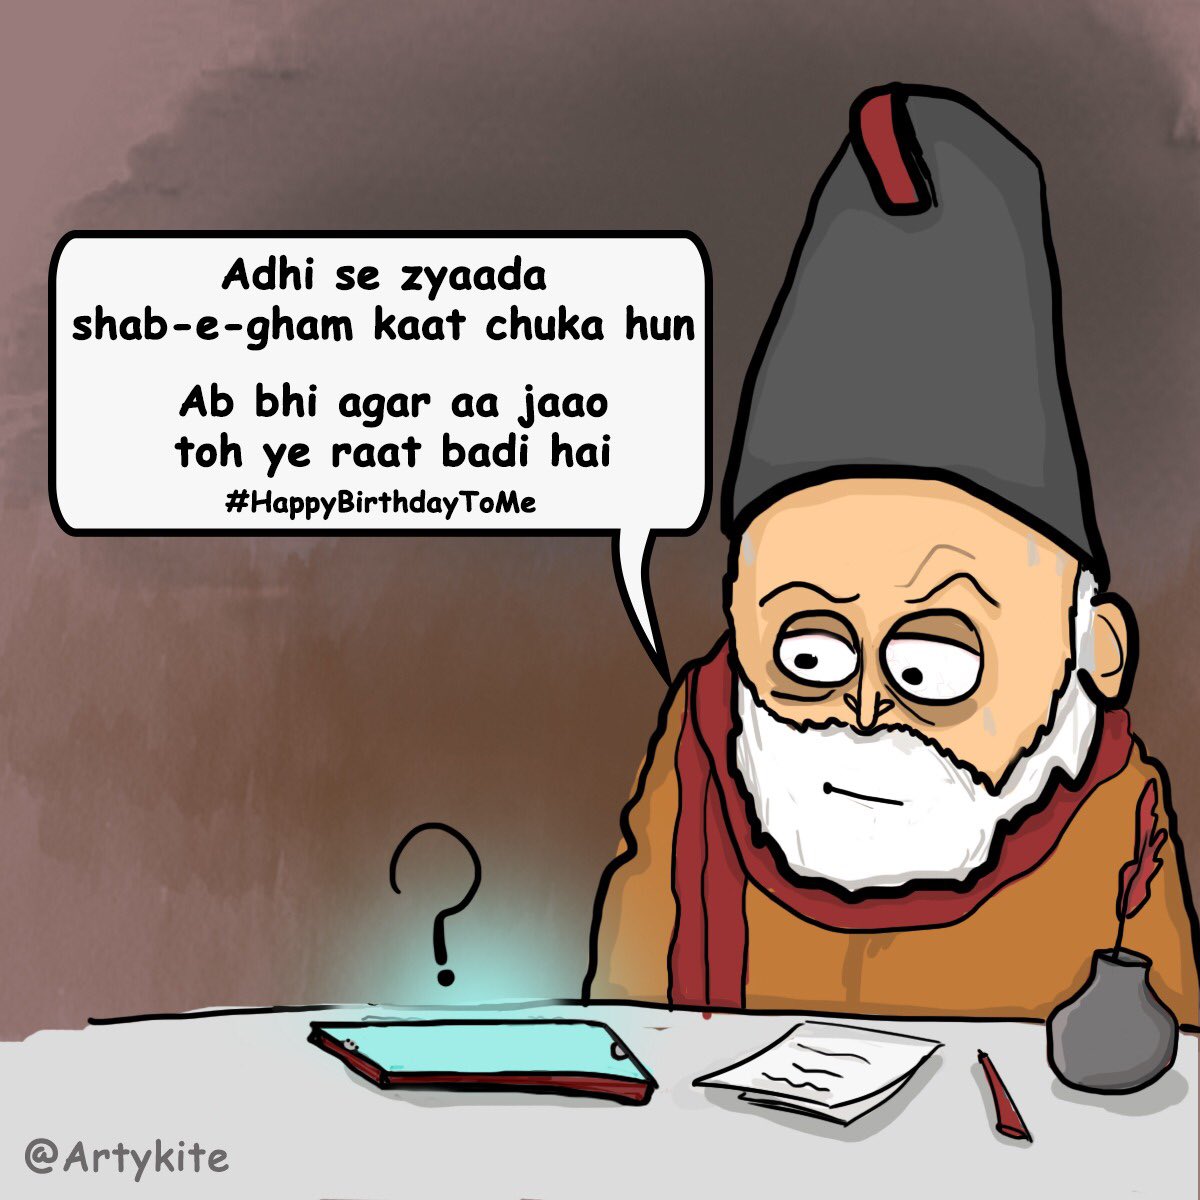 Adhi se zyaada
shab-e-gham kaat chuka hun
Ab bhi agar aa jaao
toh ye raat badi hai
#HappyBirthdayToMe
?
@Artykite